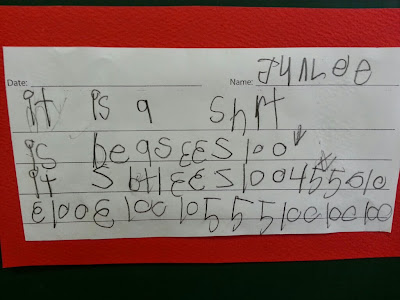 Date: Name: JUNLee
it is a Shrt
is beqsƐƐs 100
it SbtlƐƐS 10045501 0
e100e1001055510010010